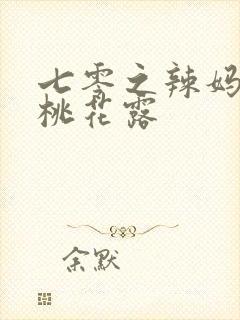 七零之辣妈
桃花露
余默